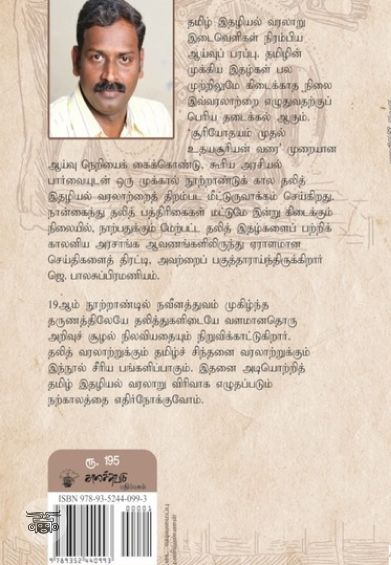 தமிழ் இதழியல் வரலாறு
இடைவெளிகள் நிரம்பிய
ஆய்வுப் பரப்பு. தமிழின்
முக்கிய இதழ்கள் பல
முற்றிலுமே கிடைக்காத நிலை
இவ்வரலாற்றை எழுதுவதற்குப்
பெரிய தடைக்கல் ஆகும்.
'சூரியோதயம் முதல்
உதயசூரியன் வரை' முறையான
ஆய்வு நெறியைக் கைக்கொண்டு, கூரிய அரசியல்
பார்வையுடன் ஒரு முக்கால் நூற்றாண்டுக் கால தலித்
இதழியல் வரலாற்றைத் திறம்பட மீட்டுருவாக்கம் செய்கிறது.
நான்கைந்து தலித் பத்திரிகைகள் மட்டுமே இன்று கிடைக்கும்
நிலையில், நாற்பதுக்கும் மேற்பட்ட தலித் இதழ்களைப் பற்றிக்
காலனிய அரசாங்க ஆவணங்களிலிருந்து ஏராளமான
செய்திகளைத் திரட்டி, அவற்றைப் பகுத்தாராய்ந்திருக்கிறார்
ஜெ. பாலசுப்பிரமணியம்.
19ஆம் நூற்றாண்டில் நவீனத்துவம் முகிழ்ந்த
தருணத்திலேயே தலித்துகளிடையே வளமானதொரு
அறிவுச் சூழல் நிலவியதையும் நிறுவிக்காட்டுகிறார்.
தலித் வரலாற்றுக்கும் தமிழ்ச் சிந்தனை வரலாற்றுக்கும்
இந்நூல் சீரிய பங்களிப்பாகும். இதனை அடியொற்றித்
தமிழ் இதழியல் வரலாறு விரிவாக எழுதப்படும்
நற்காலத்தை எதிர்நோக்குவோம்.
ரூ. 195
காலச்சுவடு
பதிப்பகம்
ISBN 978-93-5244-099-3
00001
9 789352 440993